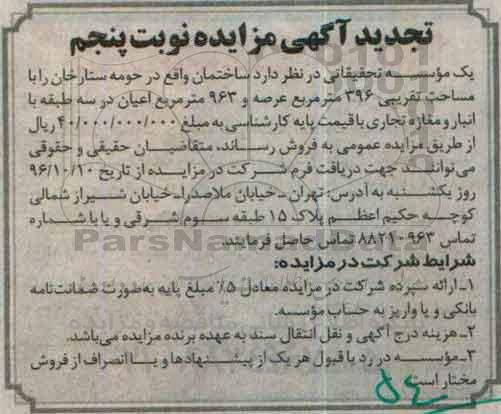 تجدید آگهی مزایده نوبت پنجم
یک مؤسسه تحقیقاتی در نظر دارد ساختمان واقع در حومه ستارخان را با
مساحت تقریبی ۳۹۶ مترمربع عرصه و ۹۶۳ مترمربع اعیان در سه طبقه با
انبار و مغازه تجاری با قیمت پایه کارشناسی به مبلغ ۴۰/۰۰۰/۰۰۰/۰۰۰ ریال
از طریق مزایده عمومی به فروش رساند، متقاضیان حقیقی و حقوقی
می‌توانند جهت دریافت فرم شرکت در مزایده از تاریخ ۹۶/۱۰/۱۰
روز یکشنبه به آدرس: تهران ـ خیابان ملاصدرا ـ خیابان شیراز شمالی
کوچه حکیم اعظم پلاک ۱۵ طبقه سوم شرقی و یا با شماره
تماس ۸۸۲۱۰۹۶۳ تماس حاصل فرمایند.
شرایط شرکت در مزایده:
۱ـ ارائه سپرده شرکت در مزایده معادل ۵٪ مبلغ پایه به‌صورت ضمانت‌نامه
بانکی و یا واریز به حساب مؤسسه.
۲ـ هزینه درج آگهی و نقل انتقال سند به عهده برنده مزایده می‌باشد.
۳ـ مؤسسه در رد یا قبول هر یک از پیشنهادها و یا انصراف از فروش
مختار است.